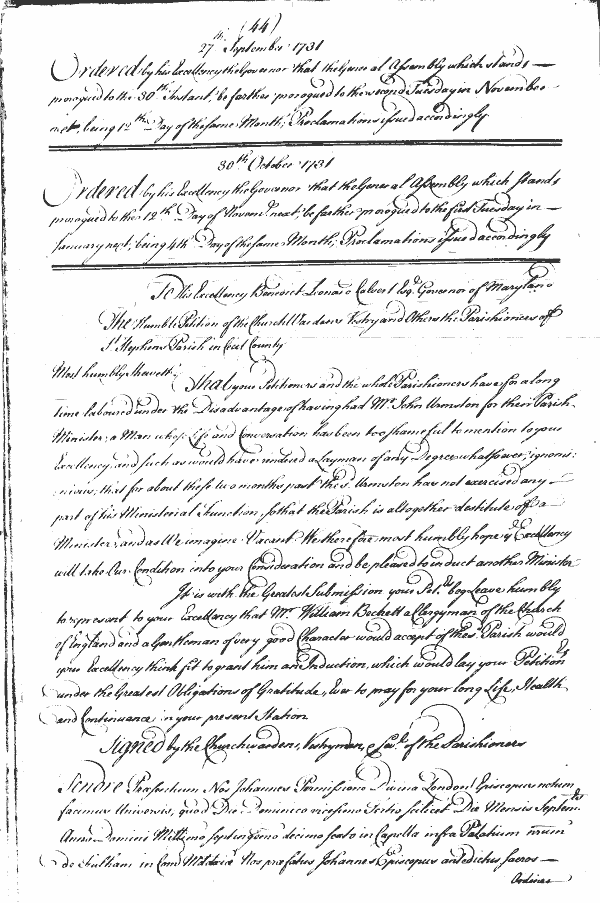 (44)
27th September 1731
Ordered by his Excellency the Governor that the General Assembly which stands
prorogued to the 30th Instant, be farther prorogued to the second Tuesday in November
next, being 12th Day of the same Month; Proclamations issued accordingly
30th October 1731
Ordered by his Excellency the Governor that the General Assembly which stands
prorogued to the 12th Day of Novemr next; be farther prorogued to the first Tuesday in
January next; being 4th Day of the same Month; Proclamations issued accordingly
To His Excellency Benedict Leonard Calvert Esqr Governor of Maryland
The Humble Petition of the Church Wardens Vestry and Others the Parishioners of
St Stephens Parish in Cecil County
Most humbly Sheweth
That your Petitioners and the whole Parishioners have for a long
time laboured under the Disadvantage of having had Mr John Urmston for their Parish
Minister; a Man whose Life and Conversation has been too shameful to mention to your
Excellency, and such as would have rendered a Layman of any Degree whatsoever, ignomi:
nious; that for about these two months past the sd Urmston has not exercised any
part of his Ministerial Function, so that the Parish is altogether destitute of a
Minister, and as We imagine Vacant. We therefore most humbly hope yr Excellency
will take Our Condition into your Consideration and be pleased to induct another Minister
It is with the Greatest Submission your Petrs beg Leave humbly
to represent to your Excellency that Mr William Beckett a Clergyman of the Church
of England and a Gentleman of very good Character would accept of this Parish would
your Excellency think fit to grant him an Induction, which would lay your Petitionrs
under the Greatest Obligations of Gratitude, Ever to pray for your long Life, Health
and Continuance in your present Station
Signed by the Churchwardens, Vestrymen, & Sevl of the Parishioners
Tenore Præsentium Nos Johannes Permissione Divina London Episcopus notum
facimus Universis, quod Die Dominico vicesimo Tertio scilicet Die Mensis Septembris
Anno Domini Millesimo septingentesimo decimo sexto in Capella infra Palatium nrum
de Fulham in Com Middxiæ Nos præfatus Johannes Episcopus antedictus sacros
Ordines